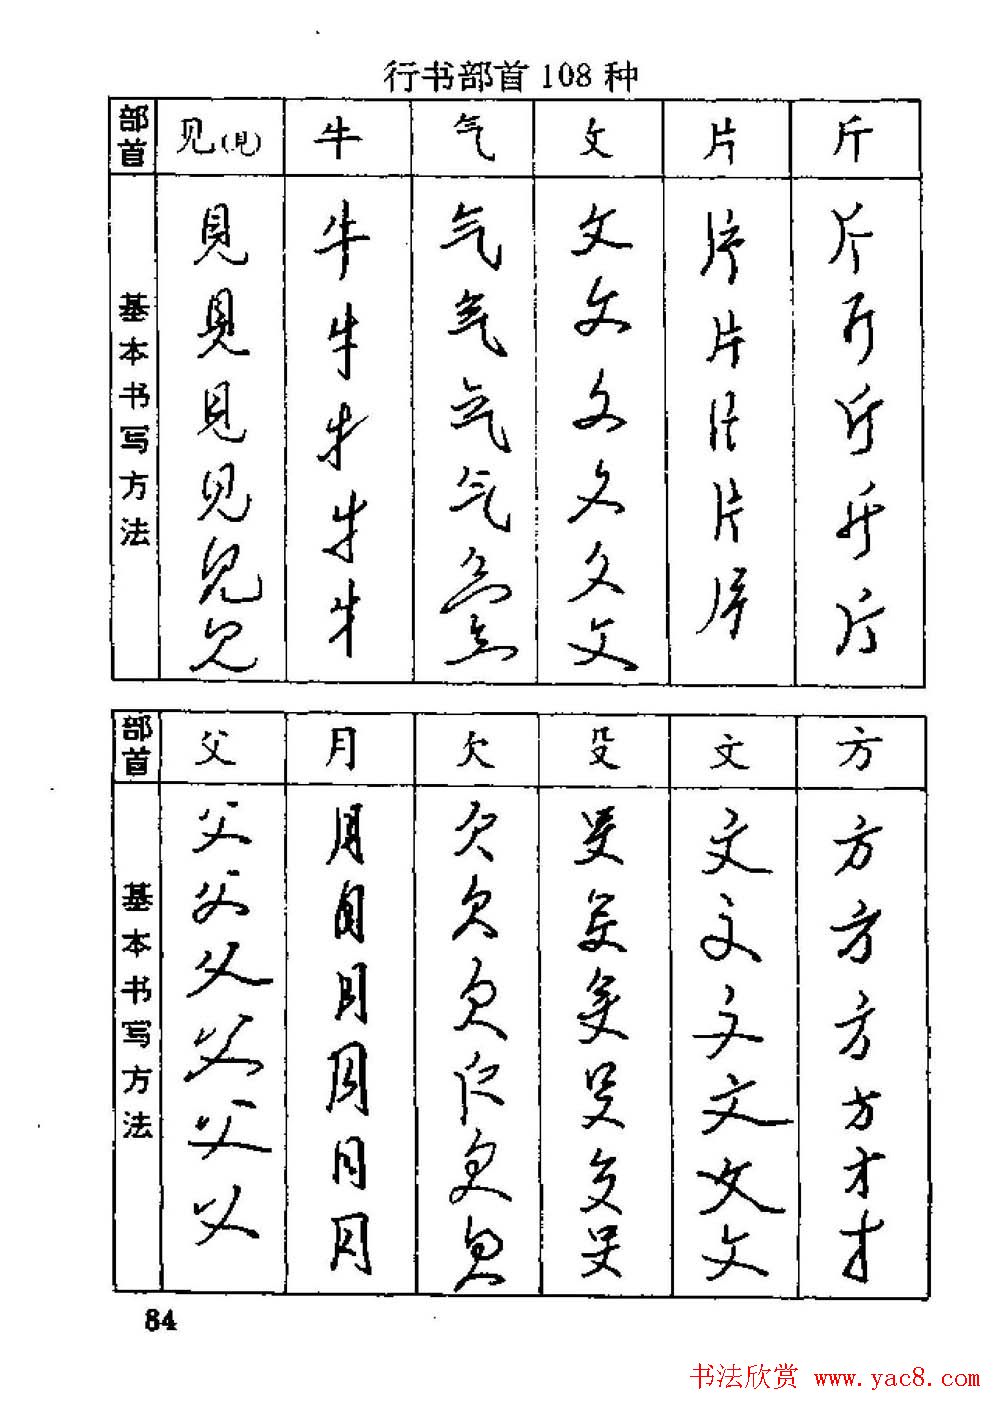 行书部首108种
部首 见(見) 牛 气 攵 片 斤
基本书写方法
見見見见见见
牛牛牛牛牛
气气气气气气
攵攵攵攵攵攵
片片片片片
斤斤斤斤斤
部首 父 月 欠 殳 文 方
基本书写方法
父父父父父父
月月月月月月
欠欠欠欠欠欠
殳殳殳殳殳殳
文文文文文文
方方方方方方
84
书法欣赏 www.yac8.com